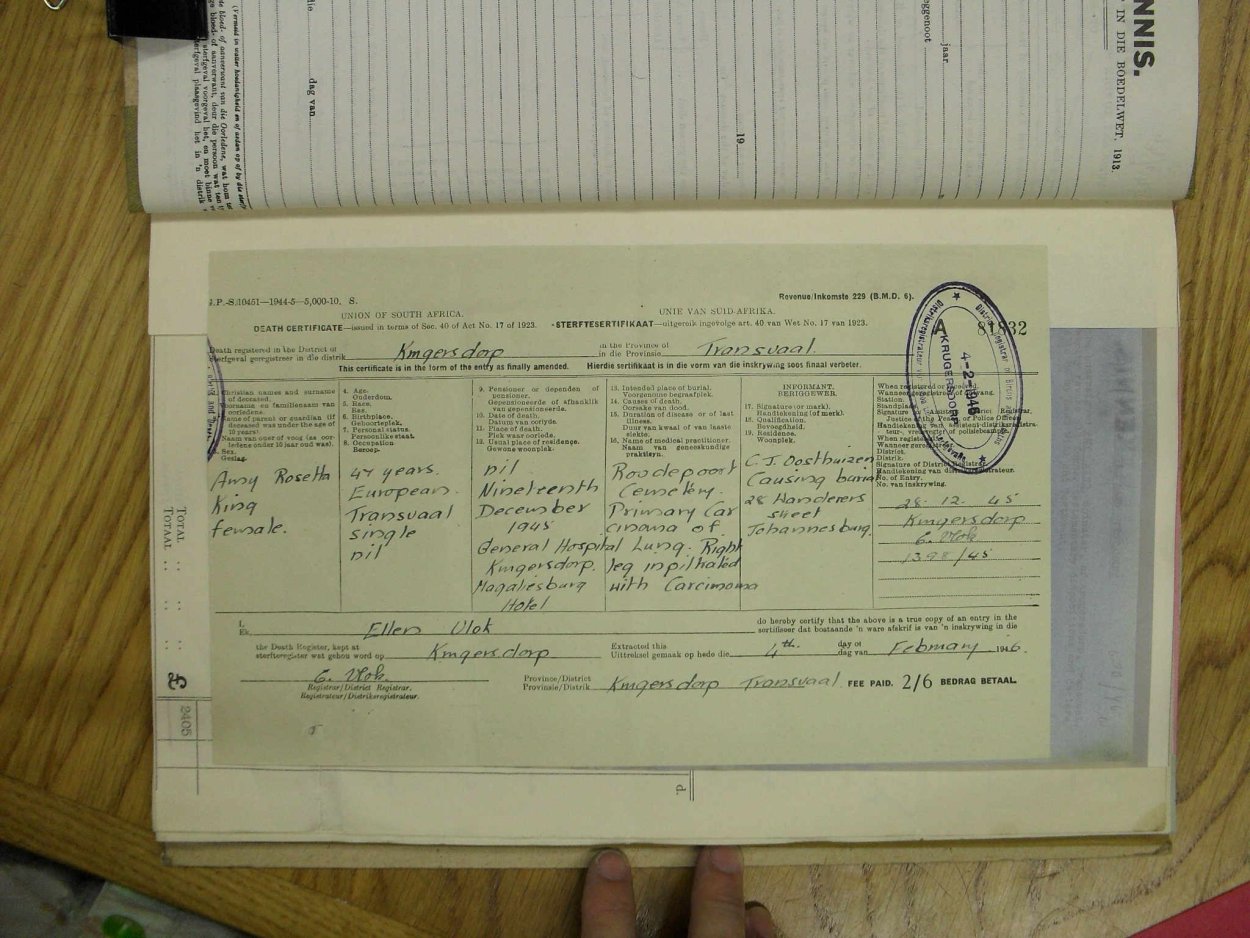 NNIS.
IN DIE BOEDELWET, 1913.
jaar
ggenoot
19
dag van
die
J.P.-S.10451—1944-5—5,000-10. S.
Revenue/Inkomste 229 (B.M.D. 6).
UNION OF SOUTH AFRICA.
UNIE VAN SUID-AFRIKA.
DEATH CERTIFICATE—issued in terms of Sec. 40 of Act No. 17 of 1923. -STERFTESERTIFIKAAT—uitgereik ingevolge art. 40 van Wet No. 17 van 1923.
A 81832
Death registered in the District of
Sterfgeval geregistreer in die distrik
Krugersdorp
in the Province of
in die Provinsie
Transvaal.
This certificate is in the form of the entry as finally amended. Hierdie sertifikaat is in die vorm van die inskrywing soos finaal verbeter.
KRUGERSDORP
4-2-1946
Christian names and surname
of deceased.
Voorname en familienaam van
oorledene.
Name of parent or guardian (if
deceased was under the age of
10 years)
Naam van ouer of voog (as oor-
ledene onder 10 jaar oud was).
Sex.
Geslag.
Amy Rosetta
King
female.
4. Age.
Ouderdom.
5. Race.
Ras.
6. Birthplace.
Geboorteplek.
7. Personal status.
Persoonlike staat.
8. Occupation
Beroep.
47 years.
European.
Transvaal
single
nil
9. Pensioner or dependen of
pensioner.
Gepensioneerde of afhanklik
van gepensioneerde.
10. Date of death.
Datum van oorlyde.
11. Place of death.
Plek waar oorlede.
12. Usual place of residence.
Gewone woonplek.
nil
Nineteenth
December
1945
General Hospital
Krugersdorp.
Magaliesburg
Hotel
13. Intended place of burial.
Voorgenome begraafplek.
14. Causes of death.
Oorsake van dood.
15. Duration of disease or of last
illness.
Duur van kwaal of van laaste
siekte.
16. Name of medical practitioner.
Naam van geneeskundige
praktisyn.
Roodepoort
Cemetery.
Primary Car
cinoma of
Lung. Right
leg inpilhated
with Carcimoma
INFORMANT.
BERIGGEWER.
17. Signature (or mark).
Handtekening (of merk).
18. Qualification.
Bevoegdheid.
19. Residence.
Woonplek.
C. J. Oosthuizen
Causing burial
28 Wanderers
street
Johannesburg.
When registered or received.
Station.
Standplaas.
When registered
District.
Distrik.
Signature of District Registrar.
No. of Entry.
No. van inskrywing.
28. 12. 45
Krugersdorp
E. Vlok
1398/45
I,
Ek,
Ellen Vlok
do hereby certify that the above is a true copy of an entry in the
sertifiseer dat bostaande 'n ware afskrif is van 'n inskrywing in die
the Death Register, kept at
sterfteregister wat gehou word op
Krugersdorp
Extracted this
Uittreksel gemaak op hede die
4th
day of
dag van
February 1946.
E. Vlok
Registrar/District Registrar.
Registrateur/Distriksregistrateur.
Province/District
Provinsie/Distrik
Krugersdorp Transvaal
FEE PAID. 2/6 BEDRAG BETAAL.
TOTAL
TOTAAL
£
2405
d.